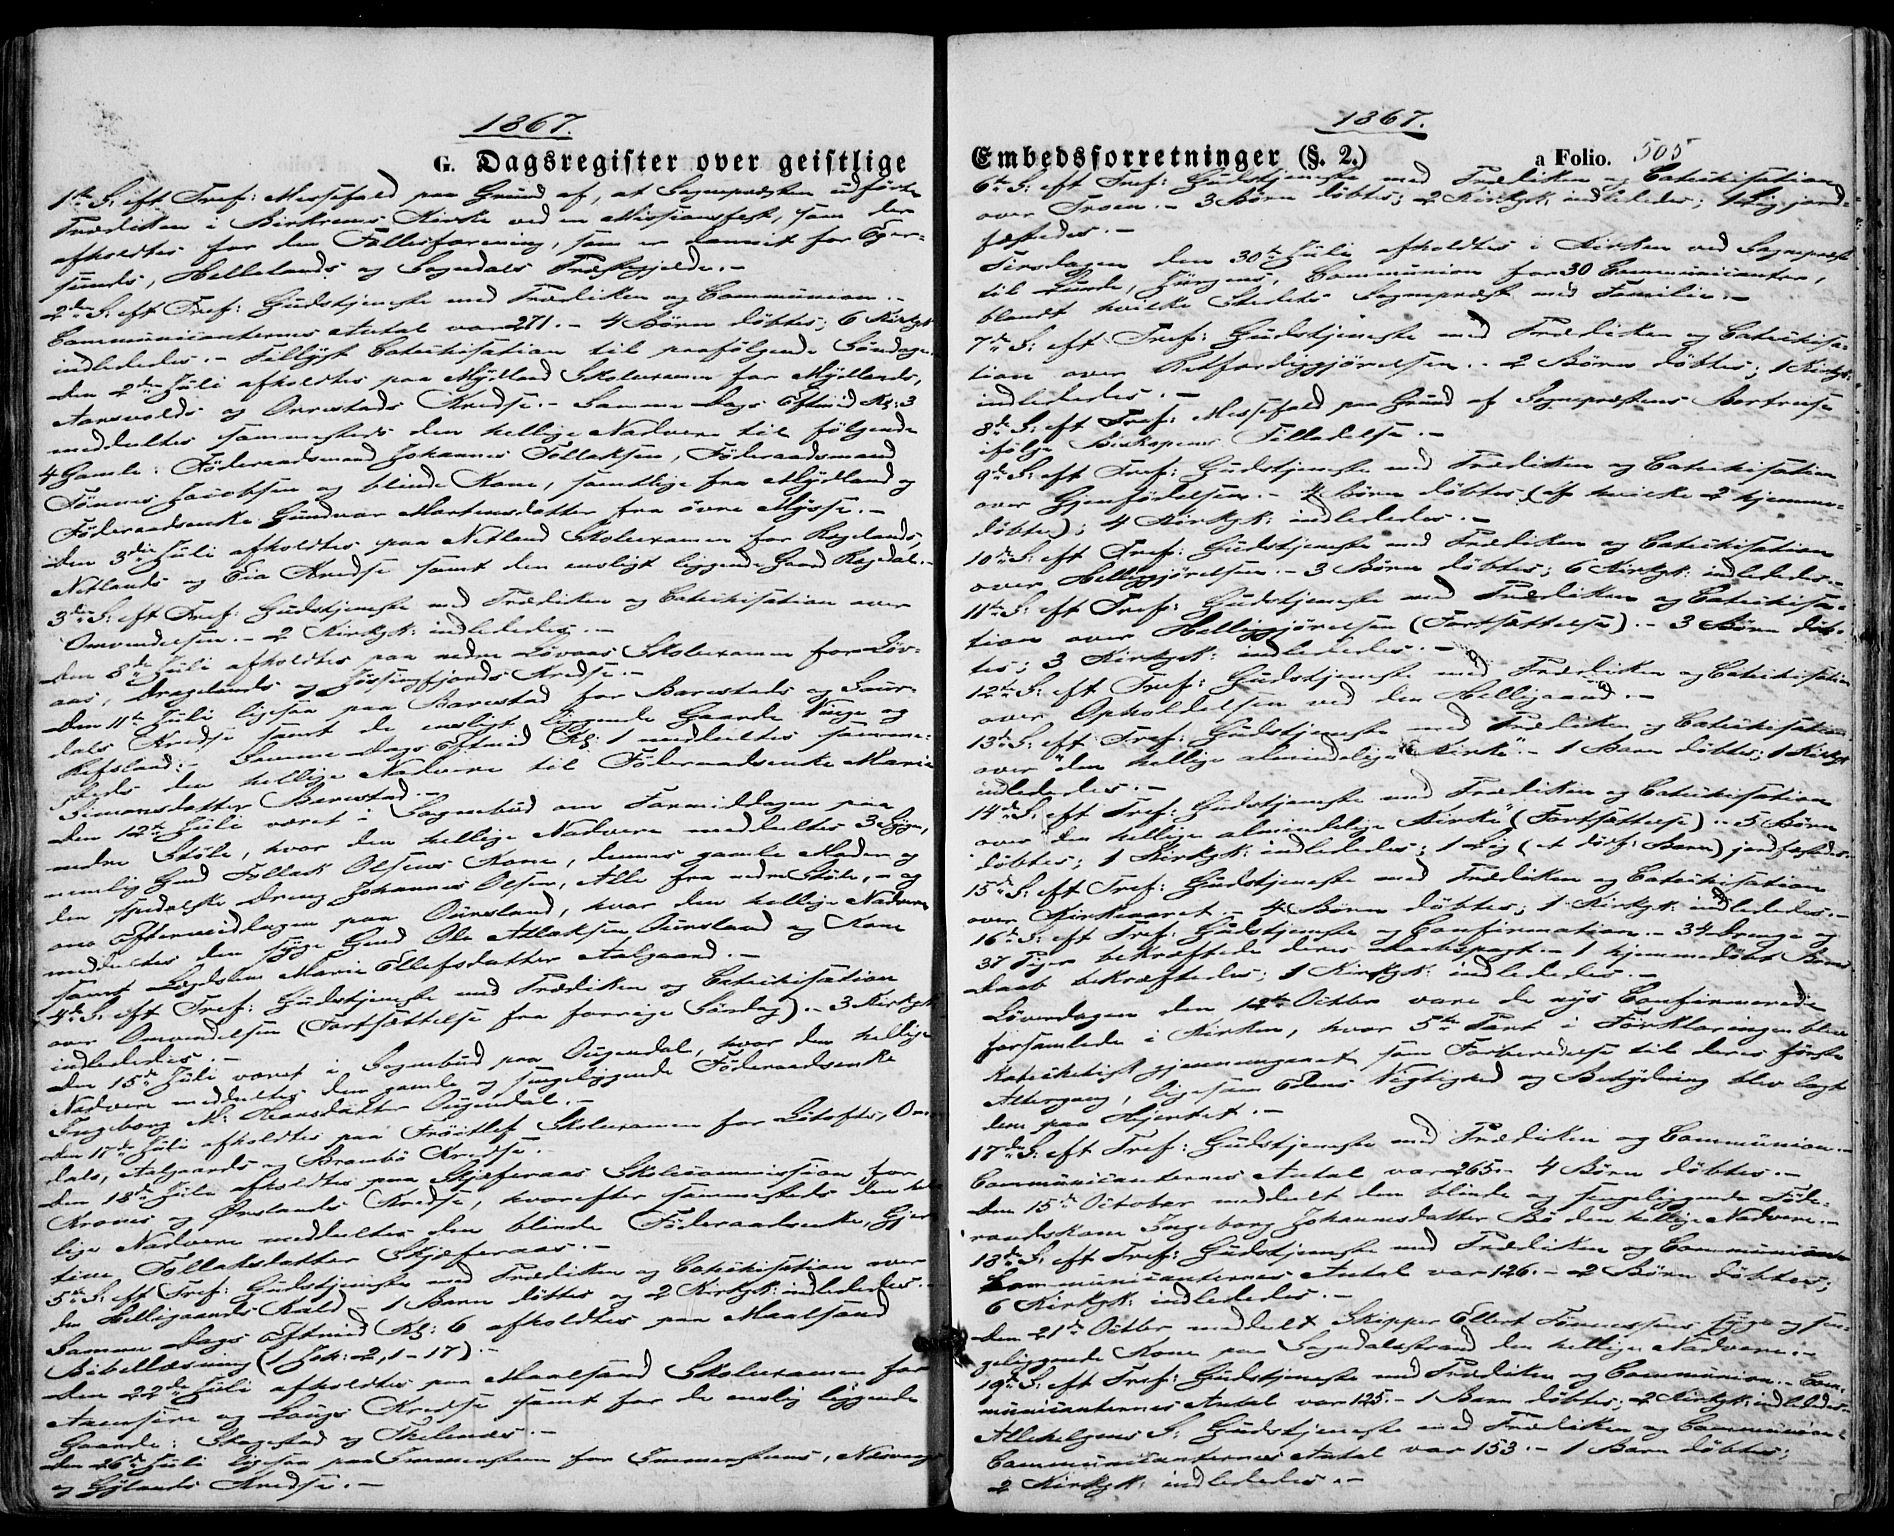 1867.
G. Dagsregister over geistlige
1ste S: eft Tref: Messefald paa Grund af, at Sognepræsten udførte
Prædiken i Birkrems Kirke ved en Missionsfest, som der
afholdtes for den Fællesforening, som er dannet for Eger-
sunds, Hellelands og Sogndals Præstegjelde.-
2den S: eft Tref: Gudstjeneste med Prædiken og Communion.-
Communicanternes Antal var 271.- 4 Børn døbtes; 6 Kirkgk:
indlededes.- Tillyst Catechisation til paafølgende Søndag.
Den 2den Juli afholdtes paa Mydland Skoleexamen for Mydlands,
Aarsvolds og Orrestads Kredse.- Samme Dags Eftmid Kl: 3
meddeltes sammesteds den hellige Nadvere til følgende
4 Gamle: Føderaadsmand Johannes Tollaksen, Føderaadsmand
Tønnes Jacobsen og blinde Kone, samtlige fra Mydland og
Føderaadsenke Gundvor Martensdatter fra øvre Mysse.-
Den 3die Juli afholdtes paa Netland Skoleexamen for Regelands,
Netlands og Eia Kredse samt den ensligt liggende Gaard Ragdal.-
3die S: eft Tref: Gudstjeneste med Prædiken og Catechisation over
Omvendelsen.- 2 Kirkgk: indlededes.-
Den 8de Juli afholdtes paa nedre Løvaas Skoleexamen for Løv-
aas, Dragelands og Jøssingfjords Kredse.-
Den 11te Juli ligesaa paa Barestad for Barestads og Saur-
dals Kredse samt de ensligt liggende Gaarde Vinge og
Refsland.- Samme Dags Eftmid Kl: 1 meddeltes samme-
steds den hellige Nadvere til Føderaadsenke Maria
Simonsdatter Barestad.-
Den 12te Juli været i Sognebud om Formiddagen paa
nedre Støle, hvor den hellige Nadvere meddeltes 3 Syge,
nemlig Gmd Tollak Olsens Kone, dennes gamle Moder og
den spedalske Dreng Johannes Olsen, Alle fra nedre Støle,- og
om Eftermiddagen paa Ouvsland, hvor den hellige Nadvere
meddeltes den syge Gmd Ole Atlaksen Ouvsland og Kone
samt Legdslem Marie Ellefsdatter Aalgaard.-
4de S: eft Tref: Gudstjeneste med Prædiken og Catechisation
over Omvendelsen (Fortsættelse fra forrige Søndag).- 3 Kirkgk:
indlededes.-
Den 15de Juli været i Sognebud paa Ougendal, hvor den hellige
Nadvere meddeltes den gamle og sengeliggende Føderaadsenke
Ingeborg M: Hansdatter Ougendal.-
Den 17de Juli afholdtes paa Frøitlef Skoleexamen for Løtofts, Om-
dals, Aalgaards og Brambø Kredse.-
Den 18de Juli afholdtes paa Skjæferaas Skolecommission for
Krones og Ørslands Kredse, hvorefter sammesteds den hel-
lige Nadvere meddeltes den blinde Føderaadsenke, Gjer-
tine Tollaksdatter Skjæferaas.-
5te S: eft Tref: Gudstjeneste med Prædiken og Catechisation over
den Helligaands Kald.- 1 Barn døbtes og 2 Kirkgk: indlededes.-
Samme Dags Eftmid Kl: 6 afholdtes paa Maalsand
Bibellæsning (1 Joh: 2, 1-17).-
Den 22de Juli afholdtes paa Maalsand Skoleexamen for
Aamsire og Lougs Kredse samt for de enslig liggende
Gaarde: Stagestad og Thelenæs.-
Den 26de Juli ligesaa paa Immenstem for Immenstems, Nesvaags
og Gylands Kredse.-
1867.
Embedsforretninger (§. 2.)
a Folio. 505
6te S: eft Tref: Gudstjeneste med Prædiken og Catechisation
over Troen.- 3 Børn døbtes; 2 Kirkgk: indlededes; 1 Lig jord-
fæstedes.-
Tirsdagen den 30te Juli afholdtes i Kirken ved Sognepræst
til Lunde, Jürgens, Communion for 30 Communicanter,
blandt hvilke Stedets Sognepræst med Familie.-
7de S: eft Tref: Gudstjeneste med Prædiken og Catechisa-
tion over Retfærdiggjørelsen.- 2 Børn døbtes; 1 Kirkgk:
indlededes.-
8de S: eft Tref: Messefald paa Grund af Sognepræstens Bortreise
ifølge Biskopens Tilladelse.-
9de S: eft Tref: Gudstjeneste med Prædiken og Catechisation
over Gjenfødelsen.- 4 Børn døbtes (af hvilke 2 hjemme-
døbte); 4 Kirkgk: indlededes.-
10de S: eft Tref: Gudstjeneste med Prædiken og Catechisation
over Helliggjørelsen.- 3 Børn døbtes; 6 Kirkgk: indlededes.-
11te S: eft Tref: Gudstjeneste med Prædiken og Catechisa-
tion over Helliggjørelsen (Fortsættelse).- 3 Børn døb-
tes; 3 Kirkgk: indlededes.-
12te S: eft Tref: Gudstjeneste med Prædiken og Catechisation
over Opholdelsen ved den Helligaand.-
13de S: eft Tref: Gudstjeneste med Prædiken og Catechisation
over "den hellige almindelige Kirke".- 1 Barn døbtes; 1 Kirkgk:
indlededes.-
14de S: eft Tref: Gudstjeneste med Prædiken og Catechisation
over "den hellige almindelige Kirke" (Fortsættelse).- 5 Børn
døbtes; 1 Kirkgk: indlededes; 1 Lig (et dødf: Barn) jordfæstedes.
15de S: eft Tref: Gudstjeneste med Prædiken og Catechisation
over Kirkeaaret.- 4 Børn døbtes; 1 Kirkgk: indlededes.-
16de S: eft Tref: Gudstjeneste og Confirmation.- 34 Drenge og
37 Piger bekræftede deres Daabspagt.- 1 hjemmedøbt Barns
Daab bekræftedes; 1 Kirkgk: indlededes.-
Løverdagen den 12te Octbr vare de nys Confirmerede
forsamlede i Kirken, hvor 5te Part i Forklaringen blev
katechetisk gjennemgaaet som Forberedelse til deres første
Altergang, ligesom Edens Vigtighed og Betydning blev lagt
dem paa Hjertet.-
17de S: eft Tref: Gudstjeneste med Prædiken og Communion.-
Communicanternes Antal var 265.- 4 Børn døbtes.-
Den 15de October meddelt den blinde og sengeliggende Føde-
raadskone Ingeborg Johannesdatter Bø den hellige Nadvere.-
18de S: eft Tref: Gudstjeneste med Prædiken og Communion
Communicanternes Antal var 126.- 2 Børn døbtes;
6 Kirkgk: indlededes.-
Den 21de Octbr meddelt Skipper Ellert Tønnessens syge og sen-
geliggende Kone paa Sogndalsstrand den hellige Nadvere.-
19de S: eft Tref: Gudstjeneste med Prædiken og Communion.- Com-
municanternes Antal var 125.- 1 Barn døbtes; 2 Kirkgk: indlededes.
Allehelgens S: Gudstjeneste med Prædiken og Communion.
Communicanternes Antal var 153.- 1 Barn døbtes;
2 Kirkgk: indlededes.-